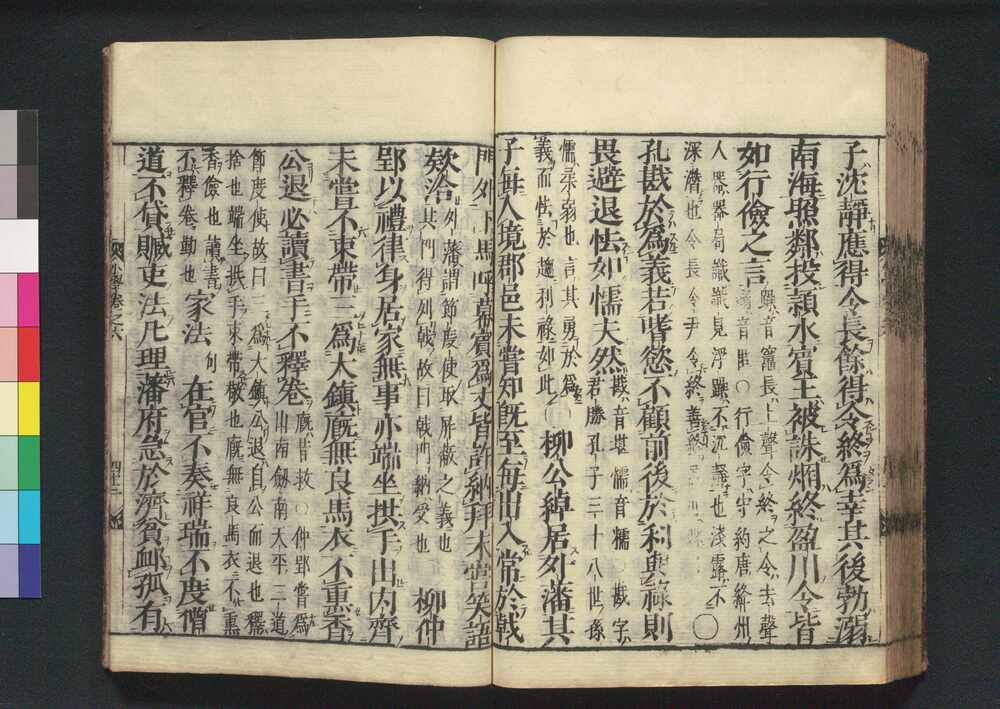 子沈靜應得令長餘得令終爲幸其後勃溺
南海照鄰投潁水賓王被誅烱終盈川令皆
如行儉之言
躁音竈長上聲令終之令去聲
人器器局識識見浮躁不沈靜也淺露不
深潛也令長令尹令終善終
○
孔戡於爲義若嗜慾不顧前後於利與祿則
畏避退怯如懦夫然
戡音堪懦音糯○戡字
君勝孔子三十八世孫
懦柔弱也言其勇於爲
義而怯於趨利祿如此
○柳公綽居外藩其
子每入境郡邑未嘗知旣至每出入常於戟
門外下馬呼幕賓爲丈皆許納拜未嘗笑語
欸洽
外藩謂節度使取屏蔽之義也
其門得列戟故曰戟門納受也
柳仲
郢以禮律身居家無事亦端坐拱手出內齊
未嘗不束帶三爲大鎭廐無良馬衣不熏香
公退必讀書手不釋卷
廐音救○仲郢嘗爲
山南劒南天平三道
節度使故曰三爲大鎭公退自公而退也釋
捨也端坐拱手束帶敬也廐無良馬衣不熏
香儉也讀書
不釋卷勤也
家法
句
在官不奏祥瑞不度僧
道不貸贓吏法凡理藩府急於濟貧卹孤有
小學卷之六
四十三